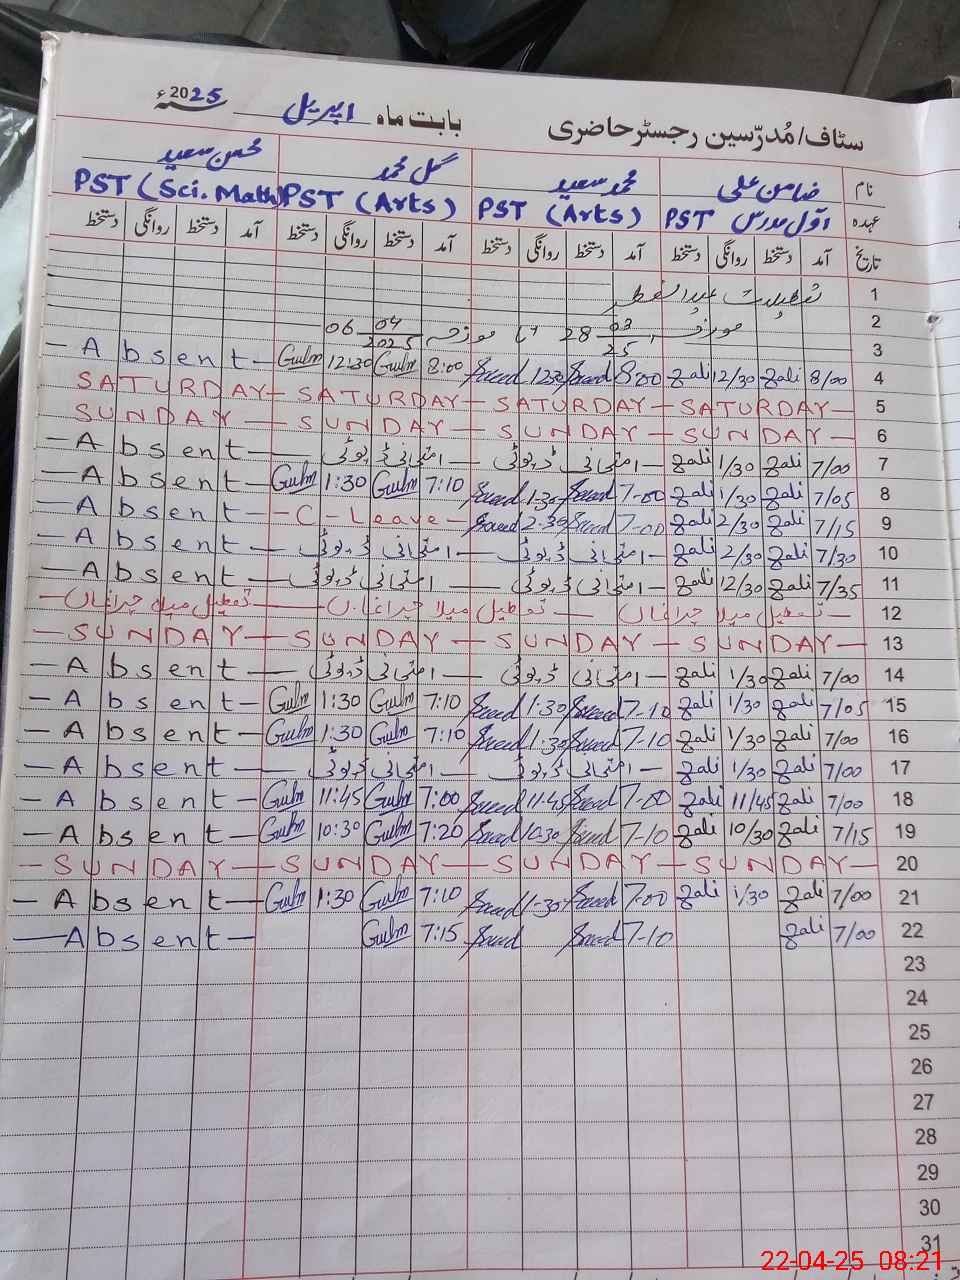 سٹاف/مُدرّسین رجسٹر حاضری بابت ماہ اپریل 2025ء
نام ضامن علی محمد سعید گل محمد محسن سعید
عہدہ اوّل مدرس PST PST (Arts) PST (Arts) PST (Sci. Math)
تاریخ آمد دستخط روانگی دستخط آمد دستخط روانگی دستخط آمد دستخط روانگی دستخط آمد دستخط روانگی دستخط
1 تعطیلات عیدالفطر
2 مورخہ 28-03-25 تا مورخہ 06-04-2025
3
4 8/00 Zali 12/30 Zali 8:00 Saeed 12:30 Saeed 8:00 Gulm 12:30 Gulm -Absent-
5 SATURDAY- SATURDAY- SATURDAY- SATURDAY-
6 SUNDAY- SUNDAY- SUNDAY- SUNDAY-
7 7/00 Zali 1/30 Zali امتحانی ڈیوٹی امتحانی ڈیوٹی -Absent-
8 7/05 Zali 1/30 Zali 7-00 Saeed 1.30 Saeed 7:10 Gulm 1:30 Gulm -Absent-
9 7/15 Zali 2/30 Zali 7-00 Saeed 2.30 Saeed -C. Leave- -Absent-
10 7/30 Zali 2/30 Zali امتحانی ڈیوٹی امتحانی ڈیوٹی -Absent-
11 7/35 Zali 12/30 Zali امتحانی ڈیوٹی امتحانی ڈیوٹی -Absent-
12 تعطیل میلا چراغاں تعطیل میلا چراغاں تعطیل میلہ چراغاں
13 SUNDAY- SUNDAY- SUNDAY- SUNDAY-
14 7/00 Zali 1/30 Zali امتحانی ڈیوٹی امتحانی ڈیوٹی -Absent-
15 7/05 Zali 1/30 Zali 7-10 Saeed 1.30 Saeed 7:10 Gulm 1:30 Gulm -Absent-
16 7/00 Zali 1/30 Zali 7-10 Saeed 1.30 Saeed 7:10 Gulm 1:30 Gulm -Absent-
17 7/00 Zali 1/30 Zali امتحانی ڈیوٹی امتحانی ڈیوٹی -Absent-
18 7/00 Zali 11/45 Zali 7-00 Saeed 11.45 Saeed 7:00 Gulm 11:45 Gulm -Absent-
19 7/15 Zali 10/30 Zali 7-10 Saeed 10.30 Saeed 7:20 Gulm 10:30 Gulm -Absent-
20 SUNDAY- SUNDAY- SUNDAY- SUNDAY-
21 7/00 Zali 1/30 Zali 7-00 Saeed 1-30 Saeed 7:10 Gulm 1:30 Gulm -Absent-
22 7/00 Zali 7-10 Saeed Saeed 7:15 Gulm -Absent-
23
24
25
26
27
28
29
30
31
22-04-25 08:21